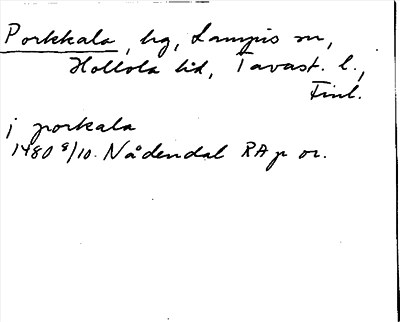 Porkkala, hg, Lampis sn,
Hollola hd, Tavast. l.,
Finl.
i porkala
1480 8/10. Nådendal RA p or.